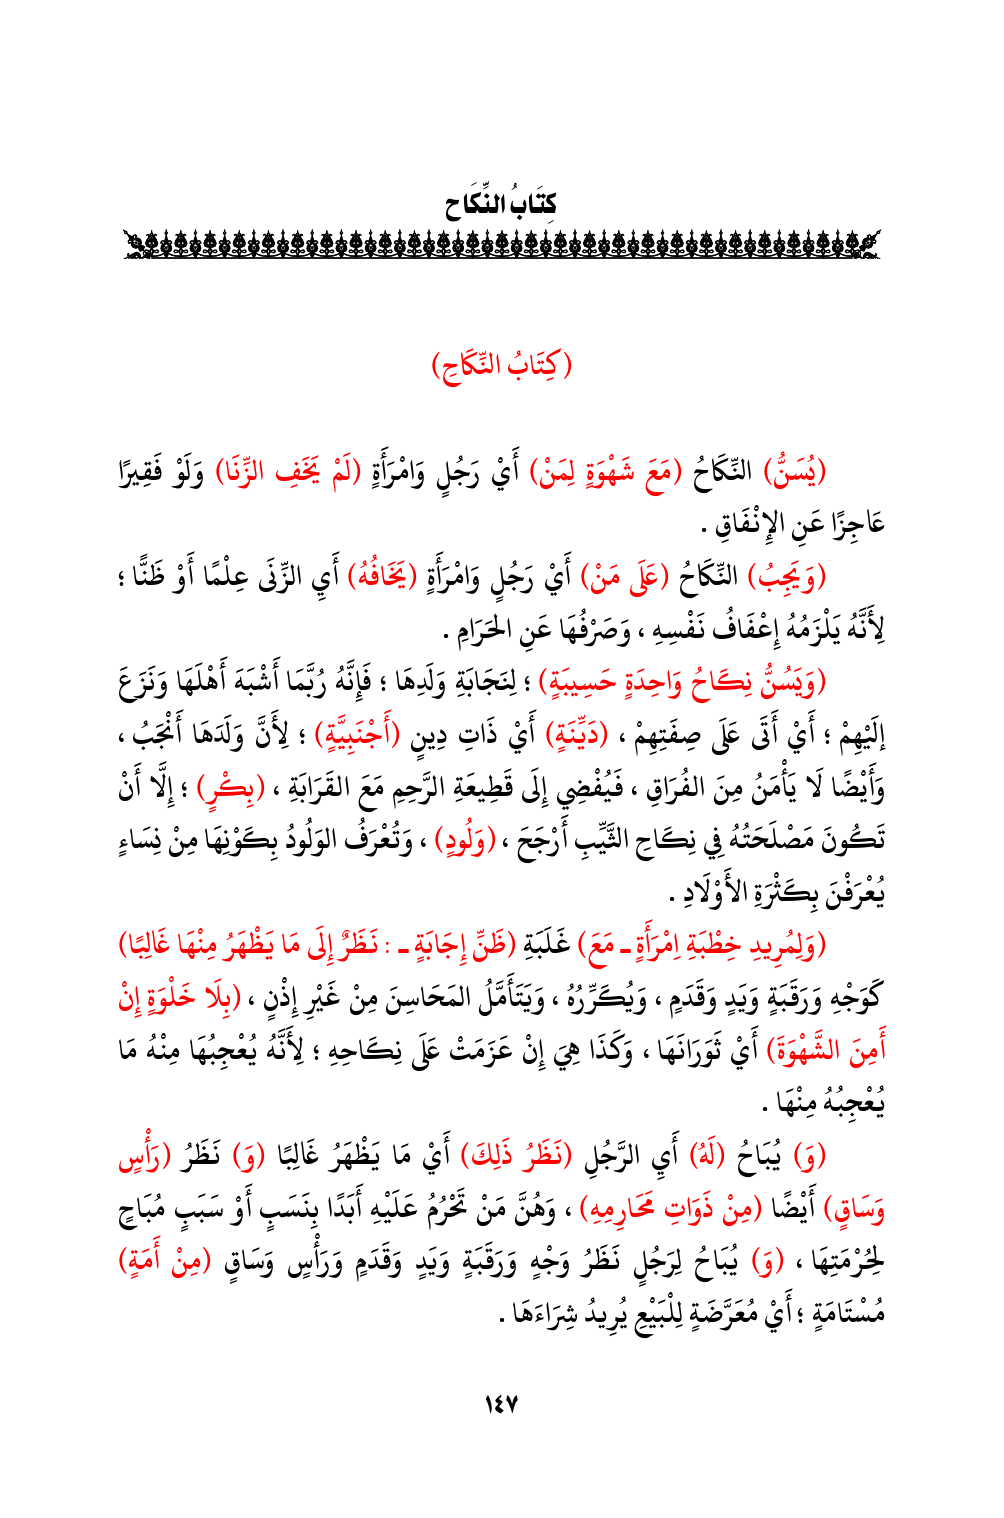 كِتَابُ النِّكَاح
(كِتَابُ النِّكَاحِ)
(يُسَنُّ) النِّكَاحُ (مَعَ شَهْوَةٍ لِمَنْ) أَيْ رَجُلٍ وَامْرَأَةٍ (لَمْ يَخَفِ الزِّنَا) وَلَوْ فَقِيرًا
عَاجِزًا عَنِ الإِنْفَاقِ .
(وَيَجِبُ) النِّكَاحُ (عَلَى مَنْ) أَيْ رَجُلٍ وَامْرَأَةٍ (يَخَافُهُ) أَيِ الزِّنَى عِلْمًا أَوْ ظَنًّا ؛
لِأَنَّهُ يَلْزَمُهُ إِعْفَافُ نَفْسِهِ ، وَصَرْفُهَا عَنِ الحَرَامِ .
(وَيَسُنُّ نِكَاحُ وَاحِدَةٍ حَسِيبَةٍ) ؛ لِنَجَابَةِ وَلَدِهَا ؛ فَإِنَّهُ رُبَّمَا أَشْبَهَ أَهْلَهَا وَنَزَعَ
إلَيْهِمْ ؛ أَيْ أَتَى عَلَى صِفَتِهِمْ ، (دَيِّنَةٍ) أَيْ ذَاتِ دِينٍ (أَجْنَبِيَّةٍ) ؛ لِأَنَّ وَلَدَهَا أَنْجَبُ ،
وَأَيْضًا لَا يَأْمَنُ مِنَ الفُرَاقِ ، فَيُفْضِي إِلَى قَطِيعَةِ الرَّحِمِ مَعَ القَرَابَةِ ، (بِكْرٍ) ؛ إِلَّا أَنْ
تَكُونَ مَصْلَحَتُهُ فِي نِكَاحِ الثَّيِّبِ أَرْجَحَ ، (وَلُودٍ) ، وَتُعْرَفُ الوَلُودُ بِكَوْنِهَا مِنْ نِسَاءٍ
يُعْرَفْنَ بِكَثْرَةِ الأَوْلَادِ .
(وَلِمُرِيدِ خِطْبَةِ اِمْرَأَةٍ ـ مَعَ) غَلَبَةِ (ظَنِّ إِجَابَةٍ ـ : نَظَرٌ إِلَى مَا يَظْهَرُ مِنْهَا غَالِبًا)
كَوَجْهِ وَرَقَبَةٍ وَيَدٍ وَقَدَمٍ ، وَيُكَرِّرُهُ ، وَيَتَأَمَّلُ المَحَاسِنَ مِنْ غَيْرِ إِذْنٍ ، (بِلَا خَلْوَةٍ إِنْ
أَمِنَ الشَّهْوَةَ) أَيْ ثَوَرَانَهَا ، وَكَذَا هِيَ إِنْ عَزَمَتْ عَلَى نِكَاحِهِ ؛ لِأَنَّهُ يُعْجِبُهَا مِنْهُ مَا
يُعْجِبُهُ مِنْهَا .
(وَ) يُبَاحُ (لَهُ) أَيِ الرَّجُلِ (نَظَرُ ذَلِكَ) أَيْ مَا يَظْهَرُ غَالِبًا (وَ) نَظَرُ (رَأْسٍ
وَسَاقٍ) أَيْضًا (مِنْ ذَوَاتِ مَحَارِمِهِ) ، وَهُنَّ مَنْ تَحْرُمُ عَلَيْهِ أَبَدًا بِنَسَبٍ أَوْ سَبَبٍ مُبَاحٍ
لِحُرْمَتِهَا ، (وَ) يُبَاحُ لِرَجُلٍ نَظَرُ وَجْهٍ وَرَقَبَةٍ وَيَدٍ وَقَدَمٍ وَرَأْسٍ وَسَاقٍ (مِنْ أَمَةٍ)
مُسْتَامَةٍ ؛ أَيْ مُعَرَّضَةٍ لِلْبَيْعِ يُرِيدُ شِرَاءَهَا .
١٤٧